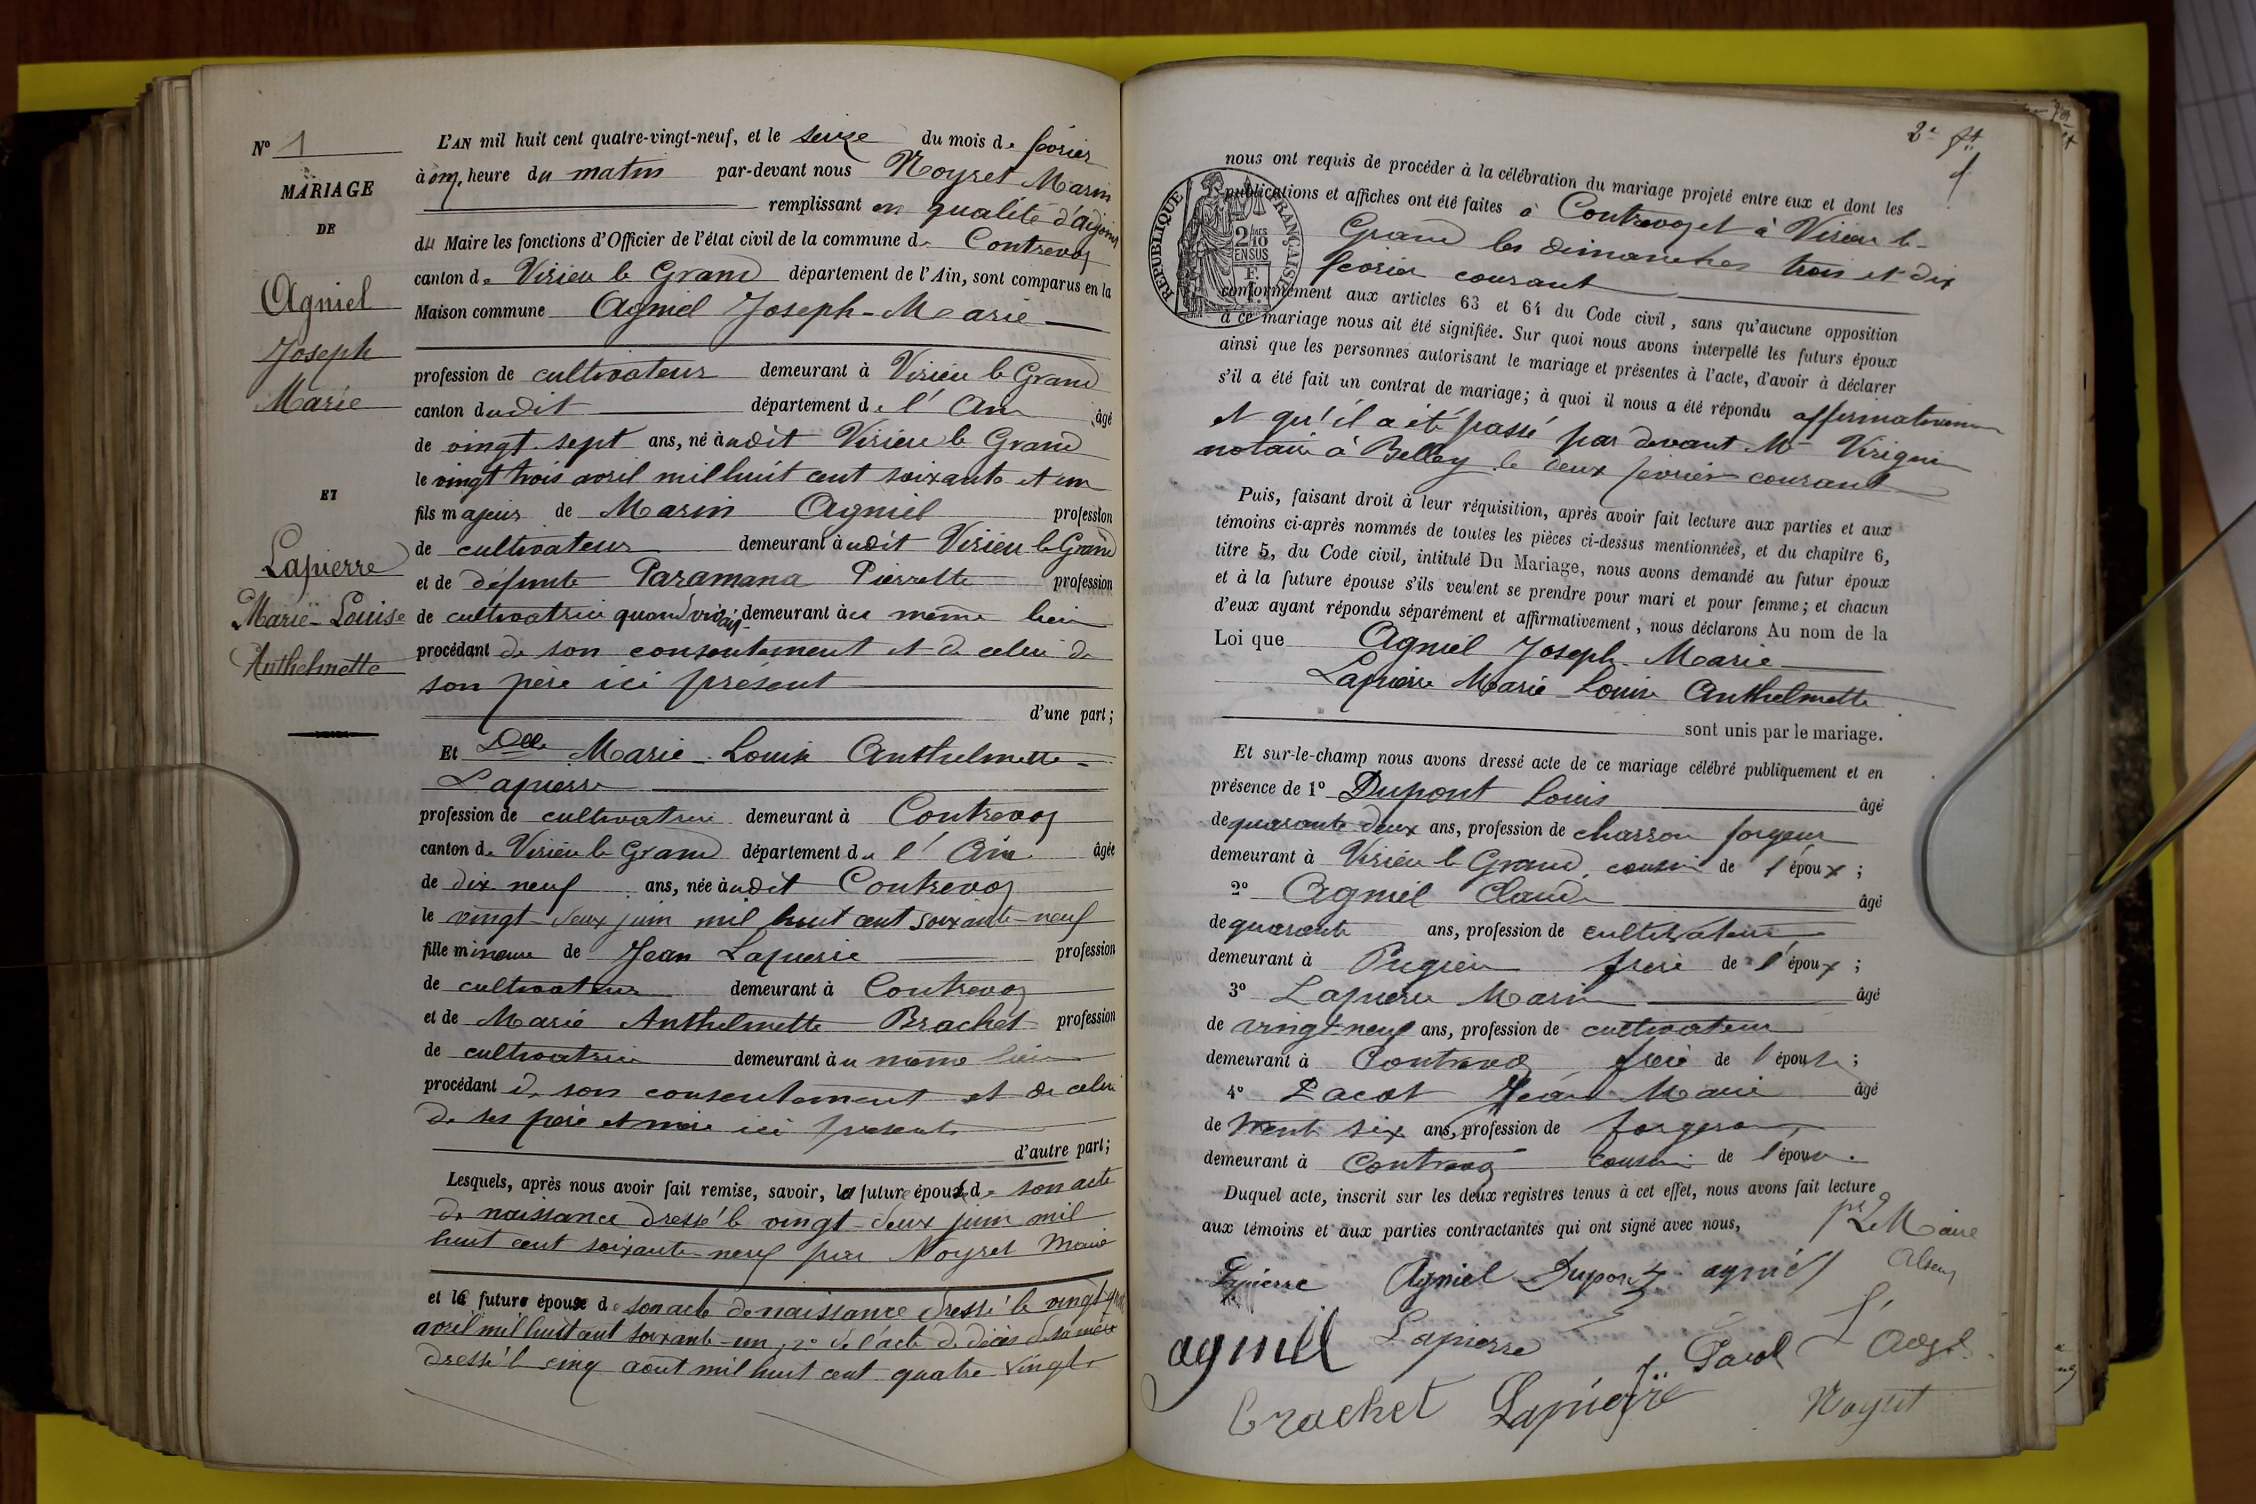 N° 1
MARIAGE
DE
Agniel
Joseph
Marie
ET
Lapierre
Marie-Louise
Anthelmette
L'AN mil huit cent quatre-vingt-neuf, et le seize du mois de février
à onze heure du matin par-devant nous Noyret Marin
remplissant en qualité d'adjoint
du Maire les fonctions d'Officier de l'état civil de la commune de Contrevoz
canton de Virieu le Grand département de l'Ain, sont comparus en la
Maison commune Agniel Joseph-Marie
profession de cultivateur demeurant à Virieu le Grand
canton dudit département de l'Ain âgé
de vingt-sept ans, né audit Virieu le Grand
le vingt trois avril mil huit cent soixante et un
fils majeur de Marin Agniel profession
de cultivateur demeurant audit Virieu le Grand
et de défunte Paramana Pierrette profession
de cultivatrice quand vivait demeurant au même lieu
procédant de son consentement et de celui de
son père ici présent
d'une part;
Et Dlle Marie-Louise Anthelmette
Lapierre
profession de cultivatrice demeurant à Contrevoz
canton de Virieu le Grand département de l'Ain âgée
de dix neuf ans, née audit Contrevoz
le vingt-deux juin mil huit cent soixante-neuf
fille mineure de Jean Lapierre profession
de cultivateur demeurant à Contrevoz
et de Marie Anthelmette Brachet profession
de cultivatrice demeurant au même lieu
procédant de son consentement et de celui
de ses père et mère ici présents
d'autre part;
Lesquels, après nous avoir fait remise, savoir, la future épouse de son acte
de naissance dressé le vingt-deux juin mil
huit cent soixante neuf par Noyret Maire
et le future épouse de son acte de naissance dressé le vingt
avril mil huit cent soixante-un, 2° de l'acte de décès de sa mère
dressé le cinq août mil huit cent quatre vingt
2e
nous ont requis de procéder à la célébration du mariage projeté entre eux et dont les
publications et affiches ont été faites à Contrevoz et à Virieu le
Grand les dimanches trois et dix
février courant
RÉPUBLIQUE FRANÇAISE
2/10 EN SUS
conformément aux articles 63 et 64 du Code civil, sans qu'aucune opposition
à ce mariage nous ait été signifiée. Sur quoi nous avons interpellé les futurs époux
ainsi que les personnes autorisant le mariage et présentes à l'acte, d'avoir à déclarer
s'il a été fait un contrat de mariage; à quoi il nous a été répondu affirmativement
et qu'il a été passé par devant Me Virignin
notaire à Belley le deux février courant
Puis, faisant droit à leur réquisition, après avoir fait lecture aux parties et aux
témoins ci-après nommés de toutes les pièces ci-dessus mentionnées, et du chapitre 6,
titre 5, du Code civil, intitulé Du Mariage, nous avons demandé au futur époux
et à la future épouse s'ils veulent se prendre pour mari et pour femme; et chacun
d'eux ayant répondu séparément et affirmativement, nous déclarons Au nom de la
Loi que Agniel Joseph-Marie
Lapierre Marie Louise Anthelmette
sont unis par le mariage.
Et sur-le-champ nous avons dressé acte de ce mariage célébré publiquement et en
présence de 1° Dupont Louis âgé
de quarante deux ans, profession de charron forgeur
demeurant à Virieu le Grand, cousin de l'époux;
2° Agniel Claude âgé
de quarante ans, profession de cultivateur
demeurant à Pugieu frère de l'époux;
3° Lapierre Marin âgé
de vingt-neuf ans, profession de cultivateur
demeurant à Contrevoz frère de l'épouse;
4° Pacot Jean Marie âgé
de trent six ans, profession de forgeron,
demeurant à Contrevoz cousin de l'épouse.
Duquel acte, inscrit sur les deux registres tenus à cet effet, nous avons fait lecture
aux témoins et aux parties contractantes qui ont signé avec nous,
pr Le Maire
Lapierre Agniel Dupont agniel
agniel Lapierre Pacot
Brachet Lapierre Noyret